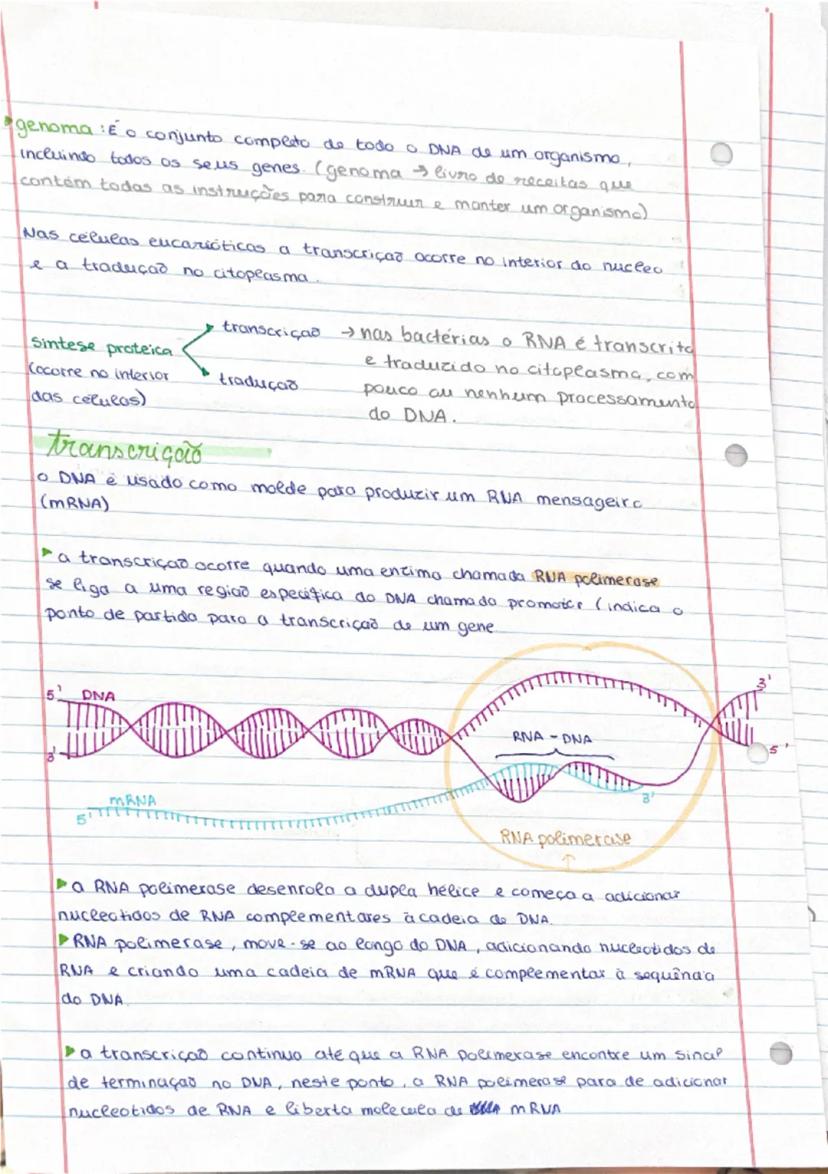 genoma: É o conjunto completo de todo o DNA de um organismo,
incluindo todos os seus genes. (genoma → livro de receitas que
contém todas as instruções para construir e manter um organismo)
Nas células eucarióticas a transcrição ocorre no interior do nucleo
e a tradução no citoplasma.
síntese proteica
(ocorre no interior
das células)
transcrição
tradução
→ nas bactérias o RNA é transcrito
e traduzido no citoplasma, com
pouco ou nenhum processamento
do DNA.
transcrição
o DNA é usado como molde para produzir um RNA mensageiro
(mRNA)
a transcrição ocorre quando uma enzima chamada RNA polimerase
se liga a uma região específica do DNA chamada promotor (indica o
ponto de partida para a transcrição de um gene
5' DNA
3'
3'
5'
RNA - DNA
mRNA
5'
3'
RNA polimerase
↑
a RNA polimerase desenrola a dupla hélice e começa a adicionar
nucleotidos de RNA complementares à cadeia de DNA.
RNA polimerase, move-se ao longo do DNA, adicionando nucleotidos de
RNA e criando uma cadeia de mRNA que é complementar à sequência
do DNA.
a transcrição continua até que a RNA polimerase encontre um sinal
de terminação no DNA, neste ponto, a RNA polimerase para de adicionar
nucleotidos de RNA e liberta molecula de mRNA